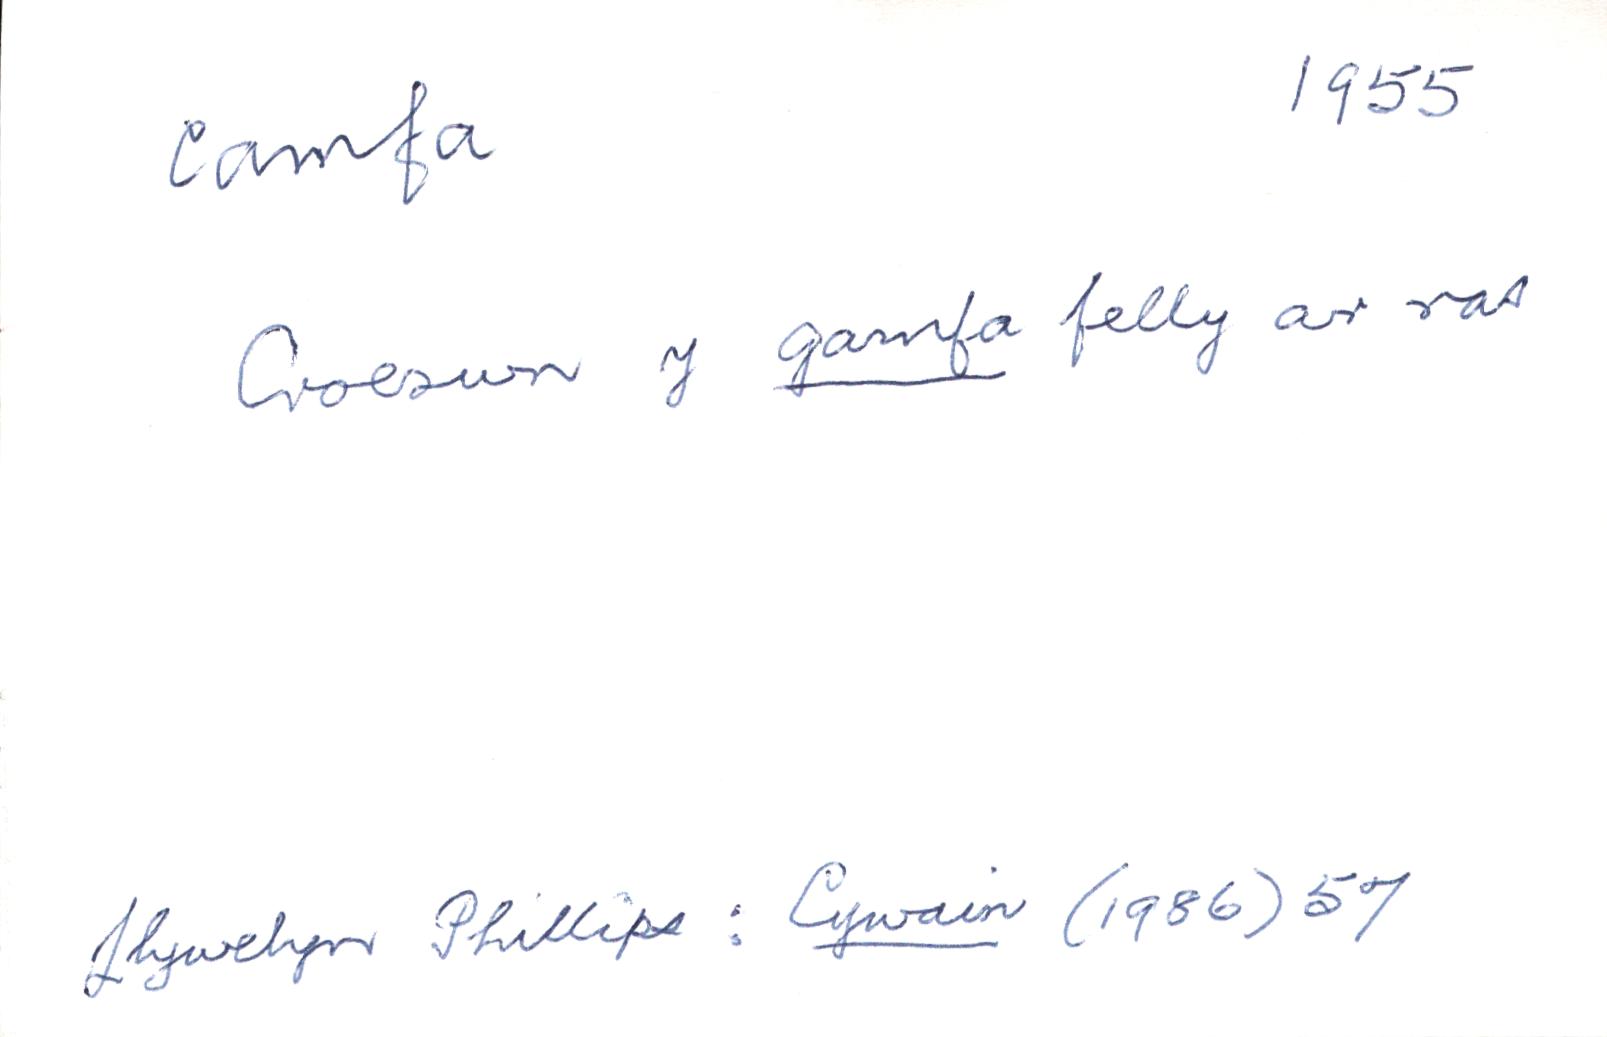 camfa 1955
Croeswn y gamfa felly ar ras
Llywelyn Phillips : Cywain (1986) 57